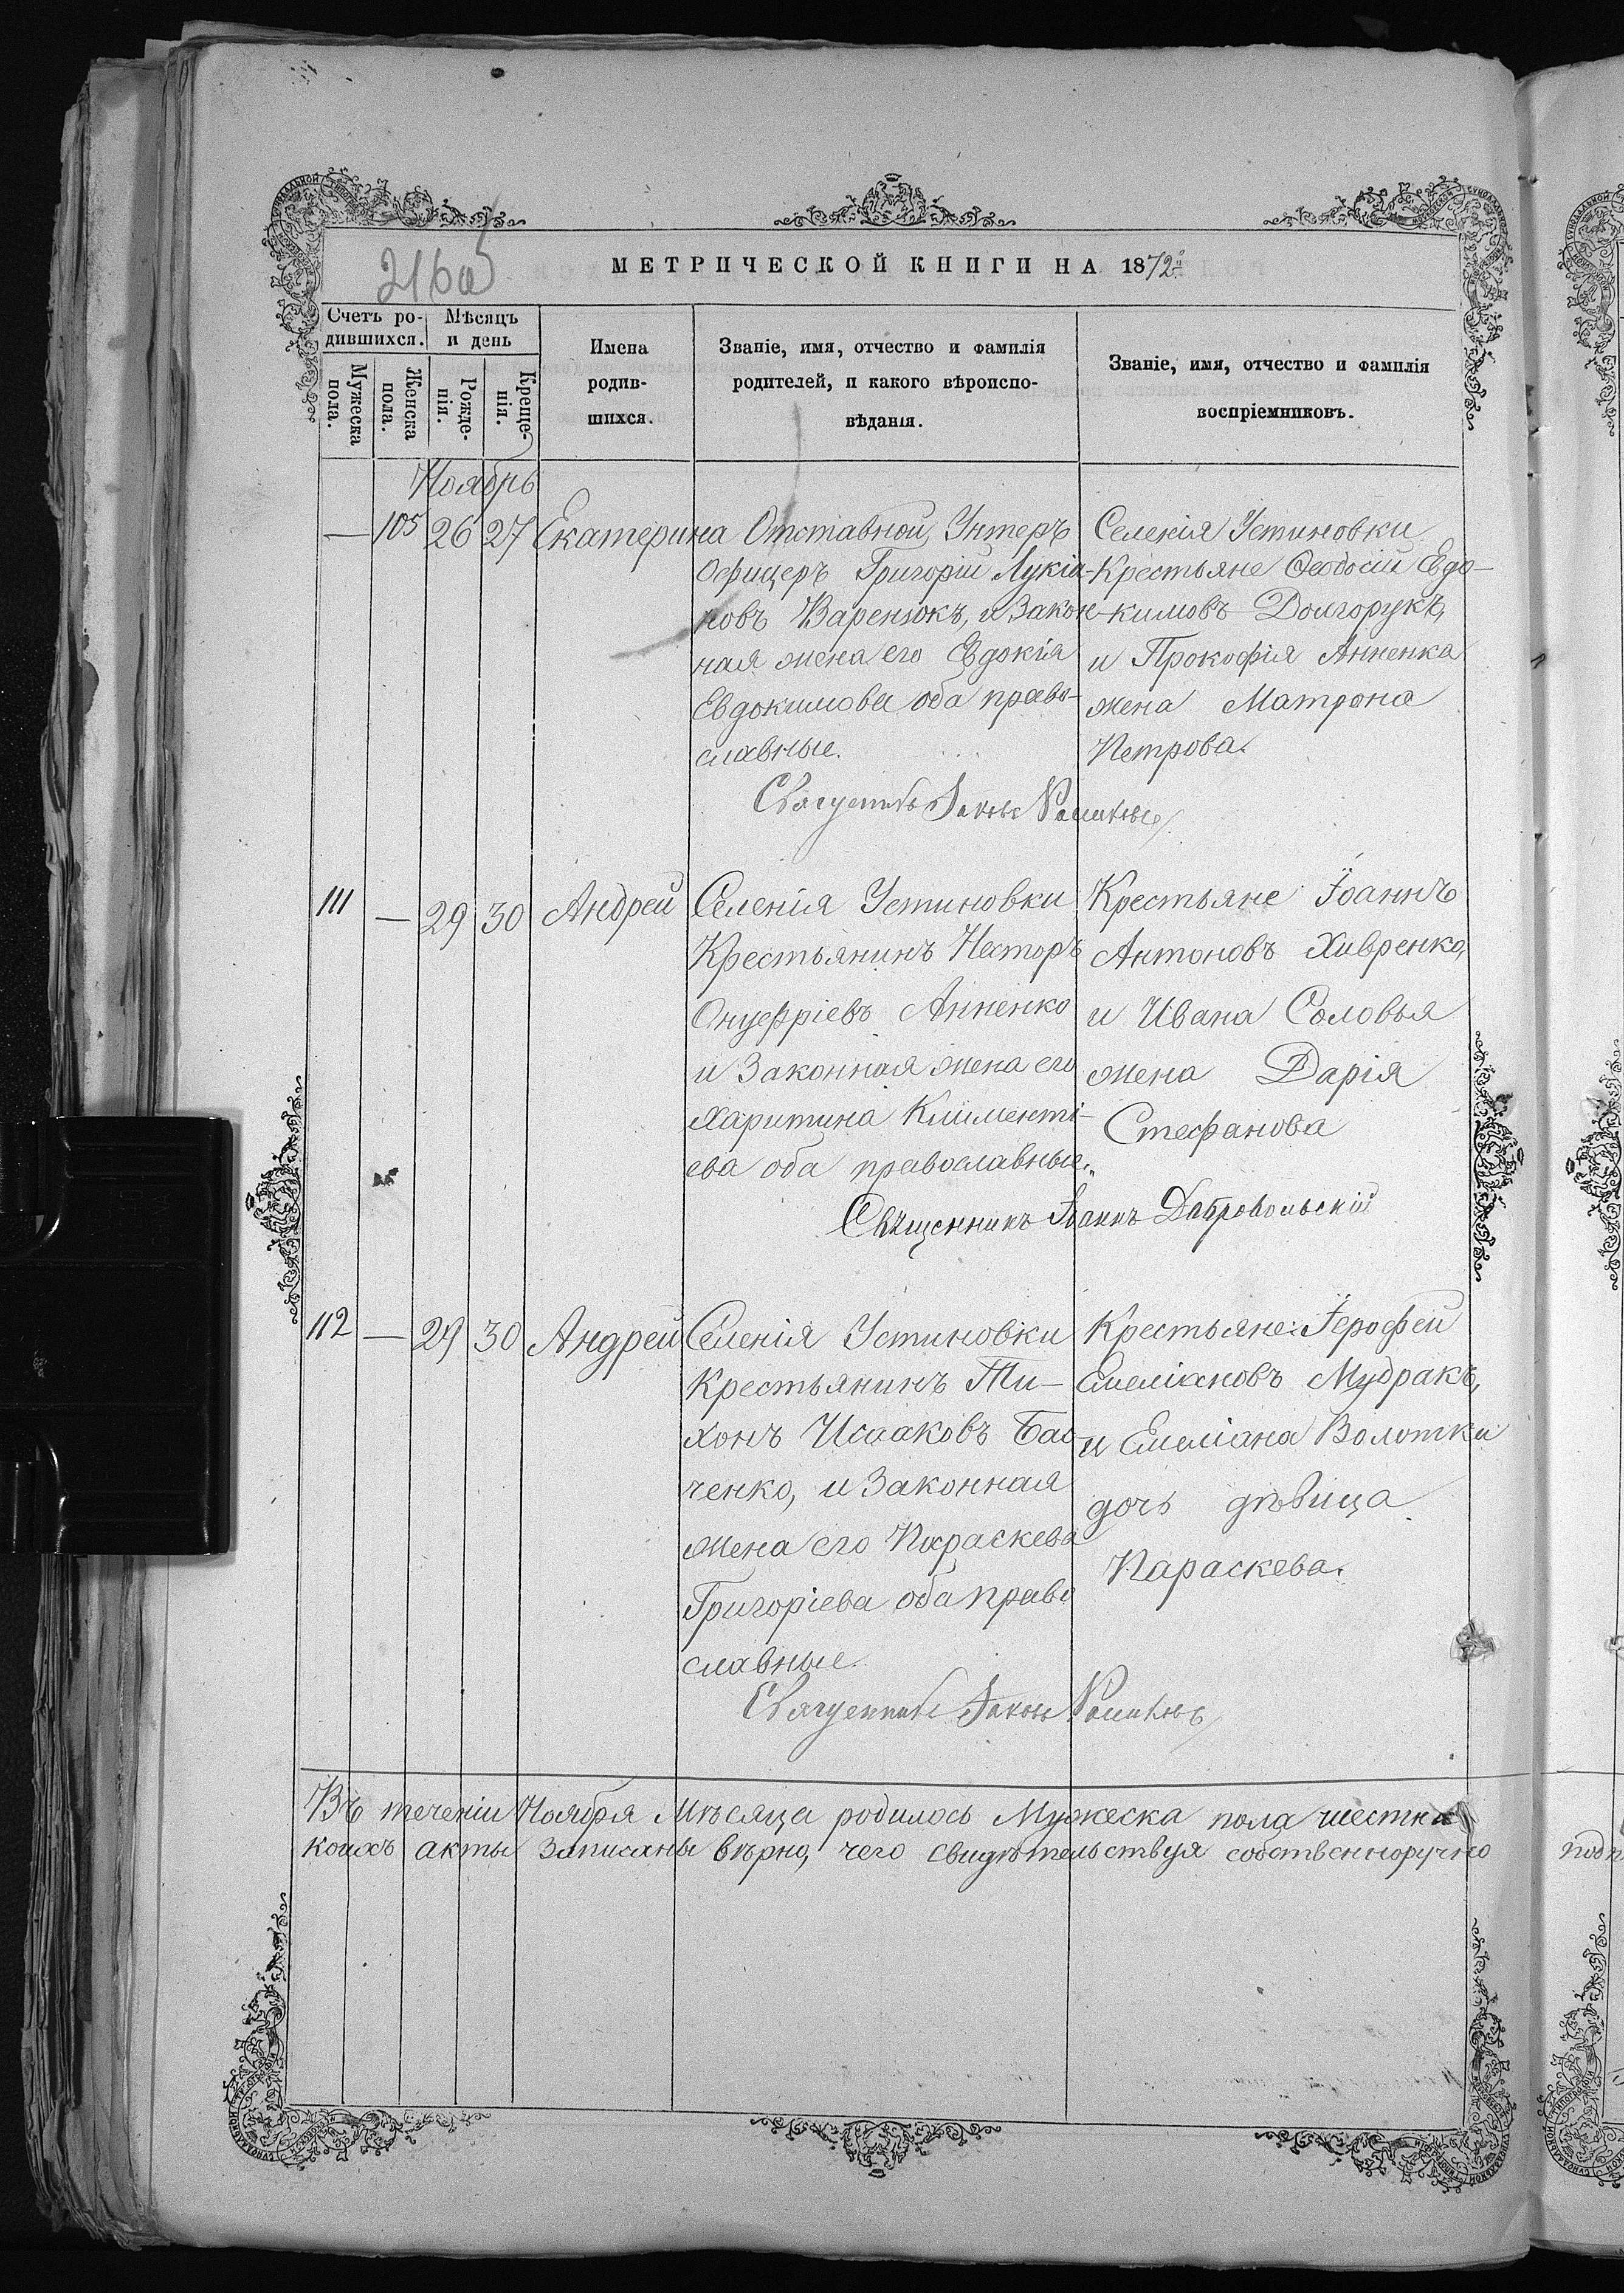 216об
МЕТРИЧЕСКОЙ КНИГИ НА 1872й
Счетъ родившихся.
Мѣсяцъ и день
Мужеска пола.
Женска пола.
Рожденія.
Крещенія.
Имена родившихся.
Званіе, имя, отчество и фамилія
родителей, и какого вѣроиспо-
вѣданія.
Званіе, имя, отчество и фамилія
воспріемниковъ.
Ноябрь
— 105 26 27 Екатерина
Отставной Унтеръ
Офицеръ Григорій Лукіа-
новъ Варенюкъ, и Закон-
ная жена его Евдокія
Евдокимова оба право-
славные.
Селенія Устиновки
Крестьяне Ѳеодосій Евдо-
кимовъ Долгорукъ,
и Прокофія Анненка
жена Матрона
Петрова.
111 — 29 30 Андрей
Селенія Устиновки
Крестьянинъ Несторъ
Онуфріевъ Анненко
и Законная жена его
Харитина Клименті-
ева оба православные.
Крестьяне Іоаннъ
Антоновъ Хивренко,
и Ивана Соловья
жена Дарія
Стефанова
Священникъ Іоаннъ Добровольскій
112 — 29 30 Андрей
Селенія Устиновки
Крестьянинъ Ти-
хонъ Исааковъ Бас-
ченко, и Законная
жена его Параскева
Григоріева оба право
славные.
Крестьяне: Іерофей
Емеліановъ Мудракъ,
и Емеліана Волотки
дочь дѣвица
Параскева.
Въ теченіи Ноября Мѣсяца родилось Мужеска пола шестна
коихъ акты Записаны вѣрно, чего свидѣтельствуя собственноручно